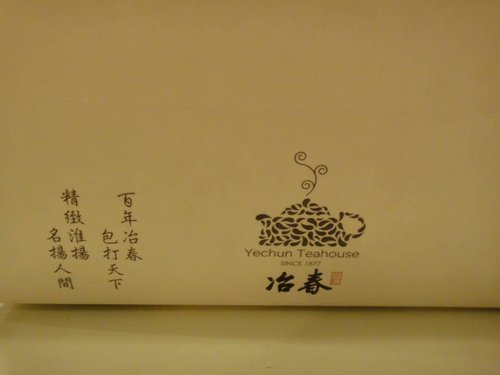 百年冶春
包打天下
精緻淮揚
名揚人間
Yechun Teahouse
SINCE 1877
冶春